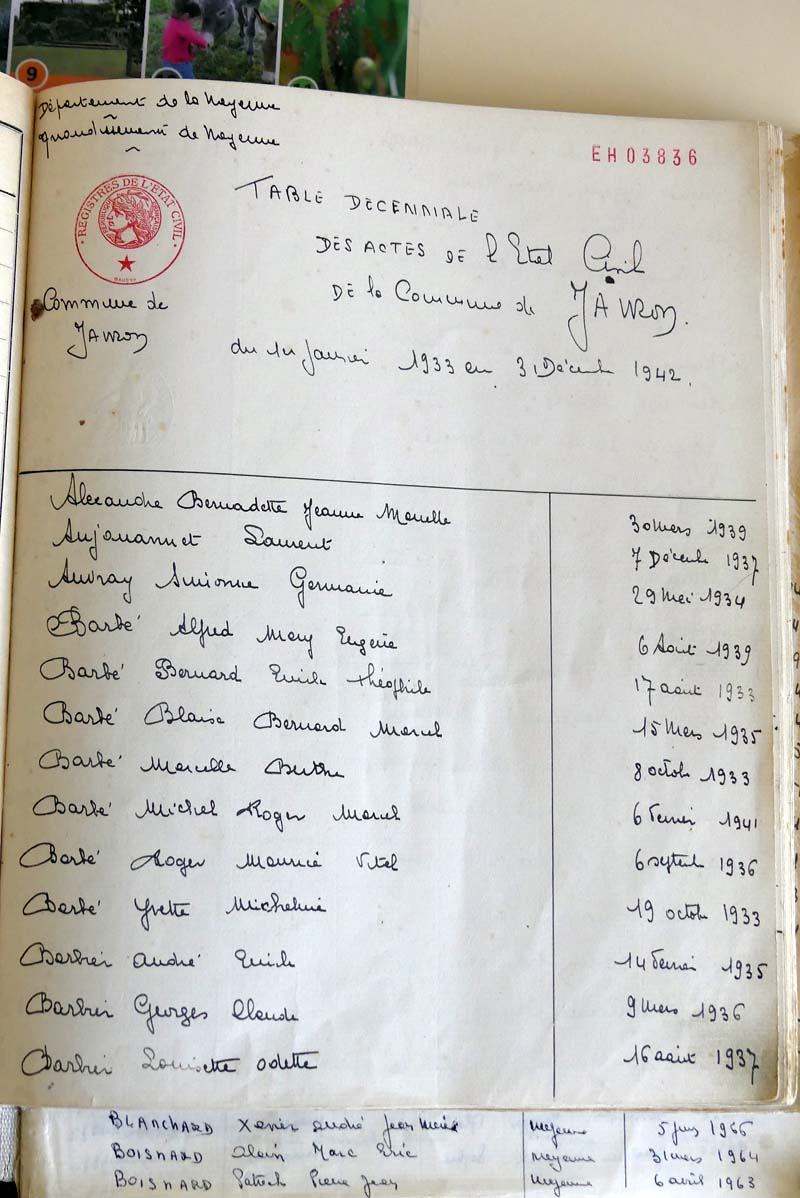 9
Département de la Mayenne
Arrondissement de Mayenne
EH03836
REGISTRES DE L'ETAT CIVIL
REPUBLIQUE FRANÇAISE
TABLE DECENNALE
DES ACTES DE l'Etat Civil
DE la Commune de JAVRON.
Commune de
JAVRON
du 1er Janvier 1933 au 31 Décembre 1942.
Alexandre Bernadette Jeanne Marcelle 30 mars 1939
Anjouannet Laurent 7 Décembre 1937
Auvray Simonne Germaine 29 Mai 1934
Barbé Alfred Mary Eugène 6 Août 1939
Barbé Bernard Emile Théophile 17 août 1933
Barbé Blaise Bernard Marcel 15 Mars 1935
Barbé Marcelle Berthe 8 octobre 1933
Barbé Michel Roger Marcel 6 Février 1941
Barbé Roger Maurice Vital 6 septembre 1936
Barbé Yvette Micheline 19 octobre 1933
Barbier André Emile 14 Février 1935
Barbier Georges Claude 9 Mars 1936
Barbier Louisette Odette 16 août 1937
BLANCHARD Xavier André Jean Marie Mayenne 5 juin 1966
BOISNARD Alain Marc Eric Mayenne 31 mars 1964
BOISNARD Patrick Pierre Jean Mayenne 6 avril 1963